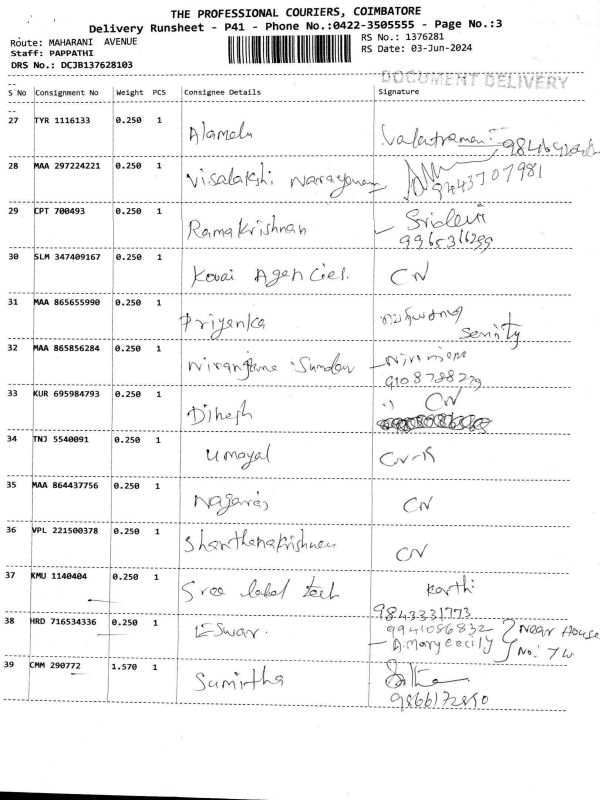 THE PROFESSIONAL COURIERS, COIMBATORE
Delivery Runsheet - P41 - Phone No.:0422-3505555 - Page No.:3
Route: MAHARANI AVENUE
Staff: PAPPATHI
DRS No.: DCJB137628103
RS No.: 1376281
RS Date: 03-Jun-2024
DOCUMENT DELIVERY
S No Consignment No Weight PCS Consignee Details Signature
27 TYR 1116133 0.250 1 Alamelu
28 MAA 297224221 0.250 1 Visalakshi Narayanan 9443707981
29 CPT 700493 0.250 1 Ramakrishnan Sridevi
9965316299
30 SLM 347409167 0.250 1 Kovai Agencies. CN
31 MAA 865655990 0.250 1 Priyanka
32 MAA 865856284 0.250 1 Niranjana Sundar
33 KUR 695984793 0.250 1 Dinesh CN
34 TNJ 5540091 0.250 1 Umayal CN-R
35 MAA 864437756 0.250 1 Nagaraj CN
36 VPL 221500378 0.250 1 Shanthanakrishnan CN
37 KMU 1140404 0.250 1 Sree label tech Karthi
9843331773
38 HRD 716534336 0.250 1 Eswar. 9941086832 Near House
A.Mary Cecily No: 7
39 CMM 290772 1.570 1 Sumirtha